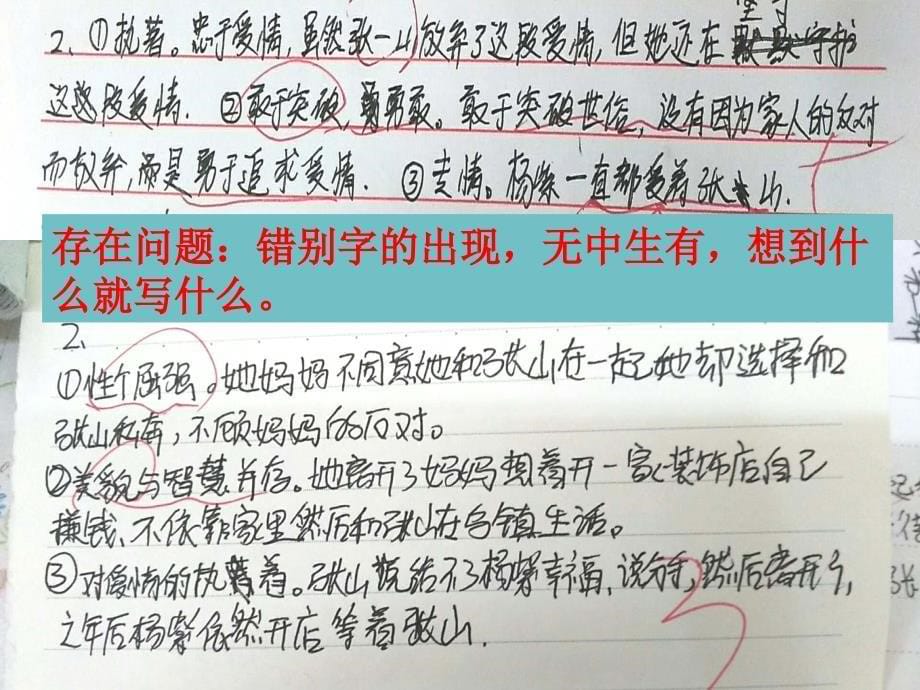 坚守
2、①执着。忠于爱情,虽然张一山放弃了这段爱情,但她还在守护
这段爱情. ②敢于突破,勇敢。敢于突破世俗,没有因为家人的反对
而放弃,而是勇于追求爱情. ③专情。杨紫一直都爱着张山.
存在问题：错别字的出现，无中生有，想到什
么就写什么。
2、
①性个屈强。她妈妈不同意她和张山在一起她却选择和
张山私奔,不顾妈妈的反对。
②美貌与智慧并存。她离开了妈妈想着开一家装饰店自己
赚钱、不依靠家里然后和张山在乌镇生活。
③对爱情的执着。张山说给不了杨紫幸福,说分手,然后离开了,
之年后杨紫依然开店等着张山.